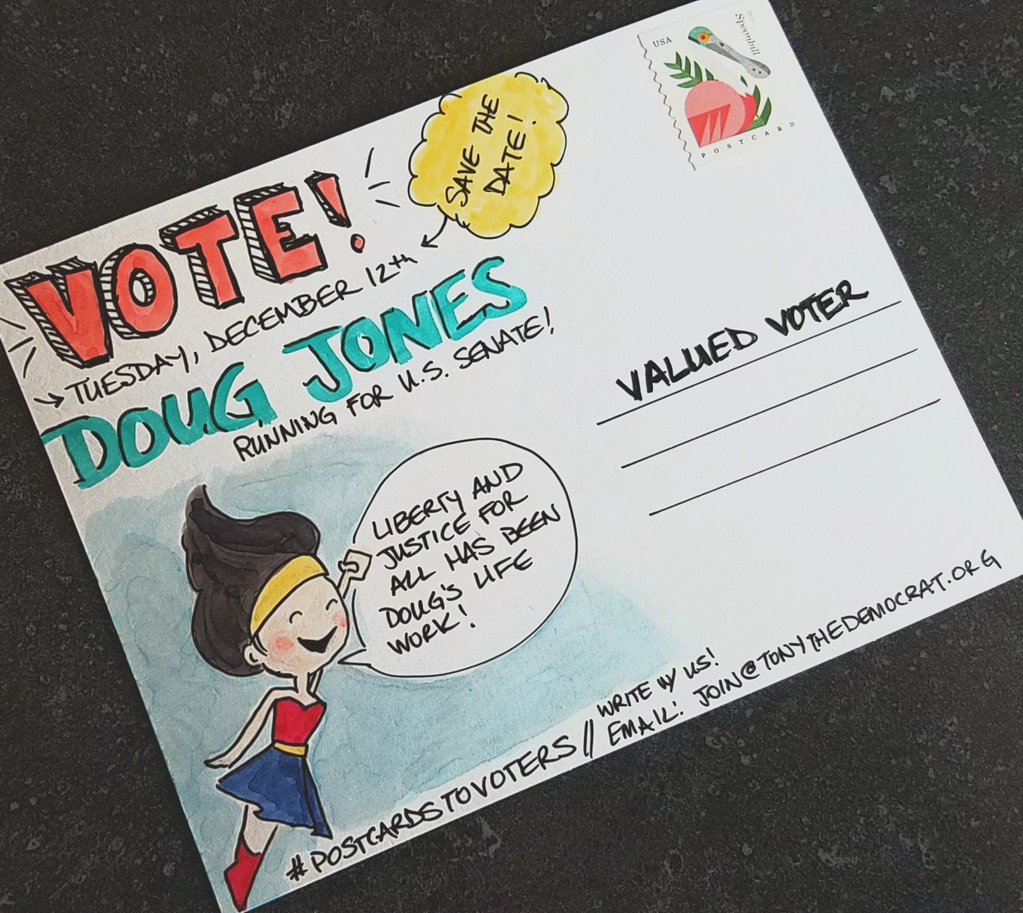 VOTE!
SAVE THE
DATE!
TUESDAY, DECEMBER 12th
DOUG JONES
RUNNING FOR U.S. SENATE!
LIBERTY AND
JUSTICE FOR
ALL HAS BEEN
DOUG'S LIFE
WORK!
#POSTCARDSTOVOTERS //
WRITE W/ US!
EMAIL: JOIN@TONYTHEDEMOCRAT.ORG
USA
Spoonbill
POSTCARD
VALUED VOTER